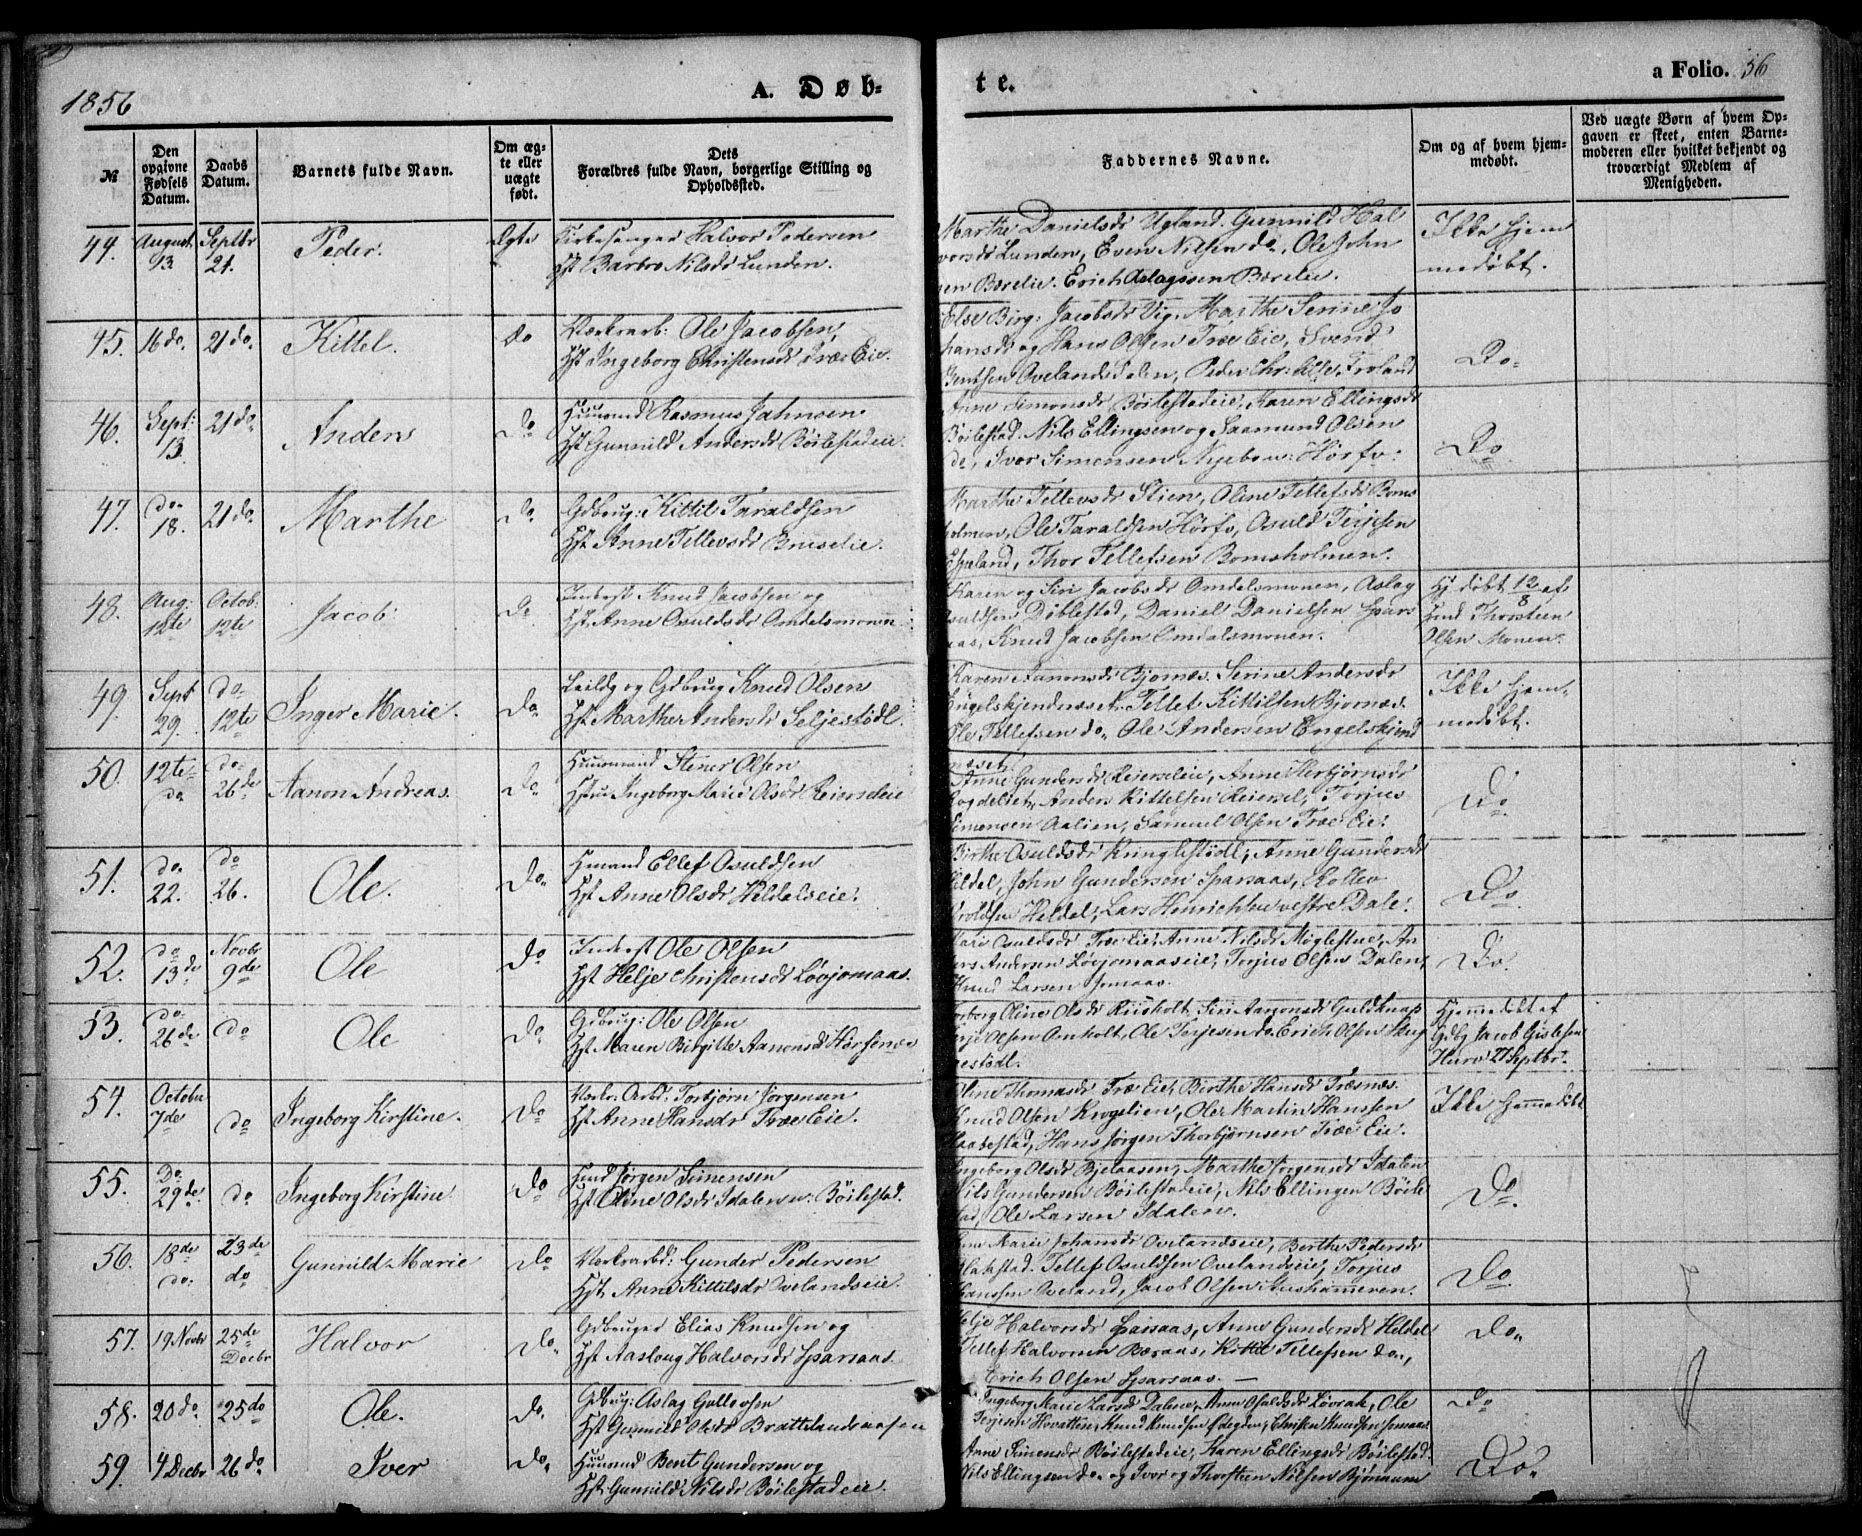 1856
A. Døb-
te.
a Folio. 56
№
Den opgivne Fødsels Datum.
Daabs Datum.
Barnets fulde Navn.
Om ægte eller uægte født.
Dets Forældres fulde Navn, borgerlige Stilling og Opholdsted.
Faddernes Navne.
Om og af hvem hjemmedøbt.
Ved uægte Børn af hvem Opgaven er skeet, enten Barnemoderen eller hvilket bekjendt og troværdigt Medlem af Menigheden.
44. August 13 Septbr 21. Peder. Ægte
Kirkesanger Halvor Pedersen
Hst Barbro Nilsdr Lunden.
Marthe Danielsdr Ugland. Gunnild Hal
vorsdr Lunden, Even Nilsen do, Ole John
sen Bærelie. Erich Aslagssen Bærelie.
Ikke hjem
medøbt.
45. 16 do. 21 do. Kittel. do
Værksarb: Ole Jacobsen,
Hst Ingeborg Christensdr Træe Eie.
Else Birg: Jacobsdr Vig. Marthe Serine Jo
hansdr og Hans Olsen Træe Eie, Svend
Bentsen Ovelands Dalen, Peder Chr: Froland
Do.
46. Sept: 13. 21 do. Anders Do
Huusmd Rasmus Jahnsen
Hst Gunnild Andersdr Böilestadeie.
Anne Simonsdr Böilestadeie, Karen Ellingsdr
Böilestad. Nils Ellingsen og Saamund Olsen
de, Ivor Simensen Hörfo:
Do
47. do. 18. 21 do. Marthe Do
Gdbrug: Kittil Taraldsen
Hst Anne Tellevsdr Bruselie.
Marthe Tellevsdr Stien, Oline Tellefsdr Boms
holmen, Ole Taraldsen Hörfo, Osuld Terjesen
Espeland, Thor Tellefsen Bomsholmen.
48. Aug: 12te Octob: 12te Jacob Do
Inderst Knud Jacobsen og
Hst. Anne Osuldsdr Omdelsmonen
Karen og Siri Jacobsdr Omdelsmonen, Aslag
Osuldsen Döblestad, Daniel Danielsen Spars
aas, Knud Jacobsen Omdalsmonen.
Hj döbt 12/8 af
Hmd Thorsteen
Olsen Monen.
49. Sept 29. do 12te Inger Marie. Do
Leildg og Gdbrug Knud Olsen
Hst Marthe Andersdr Seljestödl.
Karen Aanonsdr Bjornes. Serine Andersdr
Engelskjendneset. Tellef Kittilsen Bjornes.
Ole Tellefsen do. Ole Andersen Engelskjend
neset.
Ikke hjem
medøbt.
50. 12te do do 26de Aanon Andreas. Do
Huusmand Stener Olsen
Hstu Ingeborg Marie Olsdr Reierseleie
Anne Gundersdr Reierseleie, Anne Herbjörnsdr
Anders Kittelsen Reiersel, Torjus
Simonsen Aalien, Samuel Olsen Træe Eie.
Do.
51. do 22. do 26. Ole. Do.
Hmand Ellef Osuldsen
Hst Anne Olsdr Heldalseie.
Birthe Osuldsdr Kringlestödl, Anne Gundersdr
Heldel, John Gundersen Sparsaas, Rollev
Heldel, Lars Henrichsen vestre Dale.
Do
52. do 13de Novbr 9de Ole Do
Inderst Ole Olsen
Hst Helje Christensdr Lövjomaas.
Kari Osuldsdr Træe Eie, Anne Nilsdr Möglestue, An
ders Andersen Lövjomaaseie, Torjus Olsen Dalen,
Knud Larsen Jomaas.
Do.
53. do. 26de do Ole Do
Gdbrug: Ole Olsen
Hst Maren Birgitte Aanonsd Hörsenæs
Torborg Oline Olsdr Riisholt, Siri Aanonsdr Guldknap
Terje Olsen Omholt, Ole Terjesen do. Erich Olsen
Hjemmedöbt af
Gdbg Jacob Gislesen
Hurv 27 Septbr.
54. October 7de do Ingeborg Kirstine. Do
Værks Arbd. Torbjörn Jörgensen
Hst Anne Hansdr Træe Eie.
Oline Thomasdr Træ Eie, Birthe Hansdr Træsnæs.
Knud Olsen Krogelien, Ole Martin Hanssen
Haabestad, Hans Jörgen Thorbjörnsen Træe Eie.
Ikke hjemmedöbt
55. Do. 29de do Ingeborg Kirstine. Do
Hmd Jörgen Simensen
Hst Oline Olsdr Idalen u: Böilestad.
Ingeborg Olsdr Bjelaasen, Marthe Jörgensdr Idalen
Nils Gundersen Böilestadeie, Nils Ellingsen Böile
stad, Ole Larsen Idalen.
Do.
56. 18de do: 23de do Gunnild Marie Do
Værksarbd: Gunder Pedersen
Hst. Anne Kittilsdr Ovelandseie.
Marie Johansdr Ovelandseie, Berthe Pedersdr
Blakstad. Tellef Osuldsen Ovelandseie, Torjus
Hanssen Oveland, Jacob Olsen
Do
57. 19 Novbr 25de Decbr Halvor Do.
Gdbruger Elias Knudsen og
Hst Aaslaug Halvorsdr Sparsaas
Helje Halvorsdr Sparsaas, Anne Gundersdr Heldel
Tellef Halvorsen Bæraas, Kittel Tellefsen do.,
Erich Olsen Sparsaas. —
do.
58. 20 do 25 do Ole. Do.
Gdbrug: Aslag Gullovsen
Hst Gunnild Olsdr Brattelandsaasen
Ingeborg Marie Larsd Dalene, Anne Osuldsdr Lövrak, Ole
Terjesen Hovatten, Knud Knudsen Ødegden, Knudsen Jomaas
Do
59. 4 Decbr 26 do Iver Do.
Huusmd Bent Gundersen og
Hst: Gunnild Nilsdr Böilestadeie.
Anne Simensdr Böilestadeie, Karen Ellingsdr Böilestad.
Nils Ellingsen do. og Ivor og Thorsteen Nilsen Bjönnum
Do.